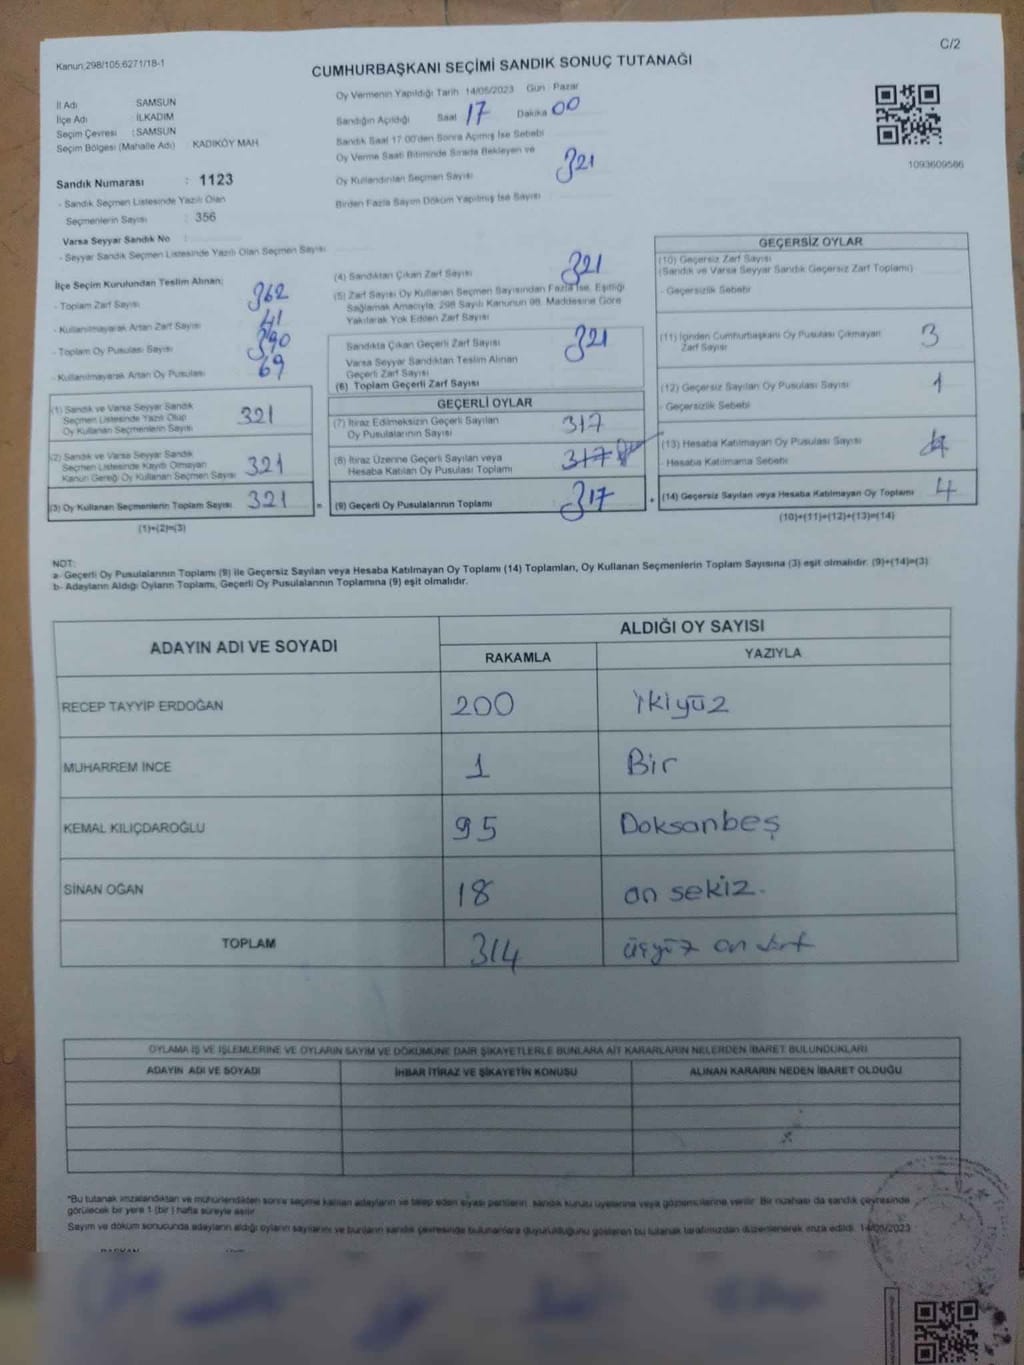 C/2
Kanun:298/105.6271/18-1
CUMHURBAŞKANI SEÇİMİ SANDIK SONUÇ TUTANAĞI
İl Adı SAMSUN
İlçe Adı İLKADIM
Seçim Çevresi : SAMSUN
Seçim Bölgesi (Mahalle Adı) : KADIKÖY MAH.
Sandık Numarası : 1123
- Sandık Seçmen Listesinde Yazılı Olan
Seçmenlerin Sayısı : 356
Varsa Seyyar Sandık No :
- Seyyar Sandık Seçmen Listesinde Yazılı Olan Seçmen Sayısı
Oy Vermenin Yapıldığı Tarih : 14/05/2023 Gün : Pazar
Sandığın Açıldığı Saat 17 Dakika 00
Sandık Saat 17.00'den Sonra Açılmış İse Sebebi
Oy Verme Saati Bitiminde Sırada Bekleyen ve
Oy Kullandırılan Seçmen Sayısı 321
Birden Fazla Sayım Döküm Yapılmış İse Sayısı
1093609586
İlçe Seçim Kurulundan Teslim Alınan:
- Toplam Zarf Sayısı 362
- Kullanılmayarak Artan Zarf Sayısı 41
- Toplam Oy Pusulası Sayısı 390
- Kullanılmayarak Artan Oy Pusulası 69
(1) Sandık ve Varsa Seyyar Sandık
Seçmen Listesinde Yazılı Olup
Oy Kullanan Seçmenlerin Sayısı 321
(2) Sandık ve Varsa Seyyar Sandık
Seçmen Listesinde Kayıtlı Olmayan
Kanun Gereği Oy Kullanan Seçmen Sayısı 321
(3) Oy Kullanan Seçmenlerin Toplam Sayısı 321 =
(1)+(2)=(3)
(4) Sandıktan Çıkan Zarf Sayısı 321
(5) Zarf Sayısı Oy Kullanan Seçmen Sayısından Fazla İse, Eşitliği
Sağlamak Amacıyla, 298 Sayılı Kanunun 98. Maddesine Göre
Yakılarak Yok Edilen Zarf Sayısı
Sandıkta Çıkan Geçerli Zarf Sayısı 321
Varsa Seyyar Sandıktan Teslim Alınan
Geçerli Zarf Sayısı
(6) Toplam Geçerli Zarf Sayısı
GEÇERLİ OYLAR
(7) İtiraz Edilmeksizin Geçerli Sayılan
Oy Pusulalarının Sayısı 317
(8) İtiraz Üzerine Geçerli Sayılan veya
Hesaba Katılan Oy Pusulası Toplamı 317
(9) Geçerli Oy Pusulalarının Toplamı 317 +
GEÇERSİZ OYLAR
(10) Geçersiz Zarf Sayısı
(Sandık ve Varsa Seyyar Sandık Geçersiz Zarf Toplamı)
- Geçersizlik Sebebi
(11) İçinden Cumhurbaşkanı Oy Pusulası Çıkmayan
Zarf Sayısı 3
(12) Geçersiz Sayılan Oy Pusulası Sayısı 1
- Geçersizlik Sebebi
(13) Hesaba Katılmayan Oy Pusulası Sayısı
- Hesaba Katılmama Sebebi
(14) Geçersiz Sayılan veya Hesaba Katılmayan Oy Toplamı 4
(10)+(11)+(12)+(13)=(14)
NOT:
a- Geçerli Oy Pusulalarının Toplamı (9) ile Geçersiz Sayılan veya Hesaba Katılmayan Oy Toplamı (14) Toplamları, Oy Kullanan Seçmenlerin Toplam Sayısına (3) eşit olmalıdır. (9)+(14)=(3)
b- Adayların Aldığı Oyların Toplamı, Geçerli Oy Pusulalarının Toplamına (9) eşit olmalıdır.
ADAYIN ADI VE SOYADI ALDIĞI OY SAYISI
RAKAMLA YAZIYLA
RECEP TAYYİP ERDOĞAN 200 ikiyüz
MUHARREM İNCE 1 Bir
KEMAL KILIÇDAROĞLU 95 Doksanbeş
SİNAN OĞAN 18 on sekiz.
TOPLAM 314 üçyüz on dört
OYLAMA İŞ VE İŞLEMLERİNE VE OYLARIN SAYIM VE DÖKÜMÜNE DAİR ŞİKAYETLERLE BUNLARA AİT KARARLARIN NELERDEN İBARET BULUNDUKLARI
ADAYIN ADI VE SOYADI İHBAR İTİRAZ VE ŞİKAYETİN KONUSU ALINAN KARARIN NEDEN İBARET OLDUĞU
*Bu tutanak imzalandıktan ve mühürlendikten sonra seçime katılan adayların ve talep eden siyasi partilerin sandık kurulu üyelerine veya gözlemcilerine verilir. Bir nüshası da sandık çevresinde
görülecek bir yere 1 (bir) hafta süreyle asılır.
Sayım ve döküm sonucunda adayların aldığı oyların sayılarını ve bunların sandık çevresinde bulunanlara duyurulduğunu gösteren bu tutanak tarafımızdan düzenlenerek imza edildi. 14/05/2023